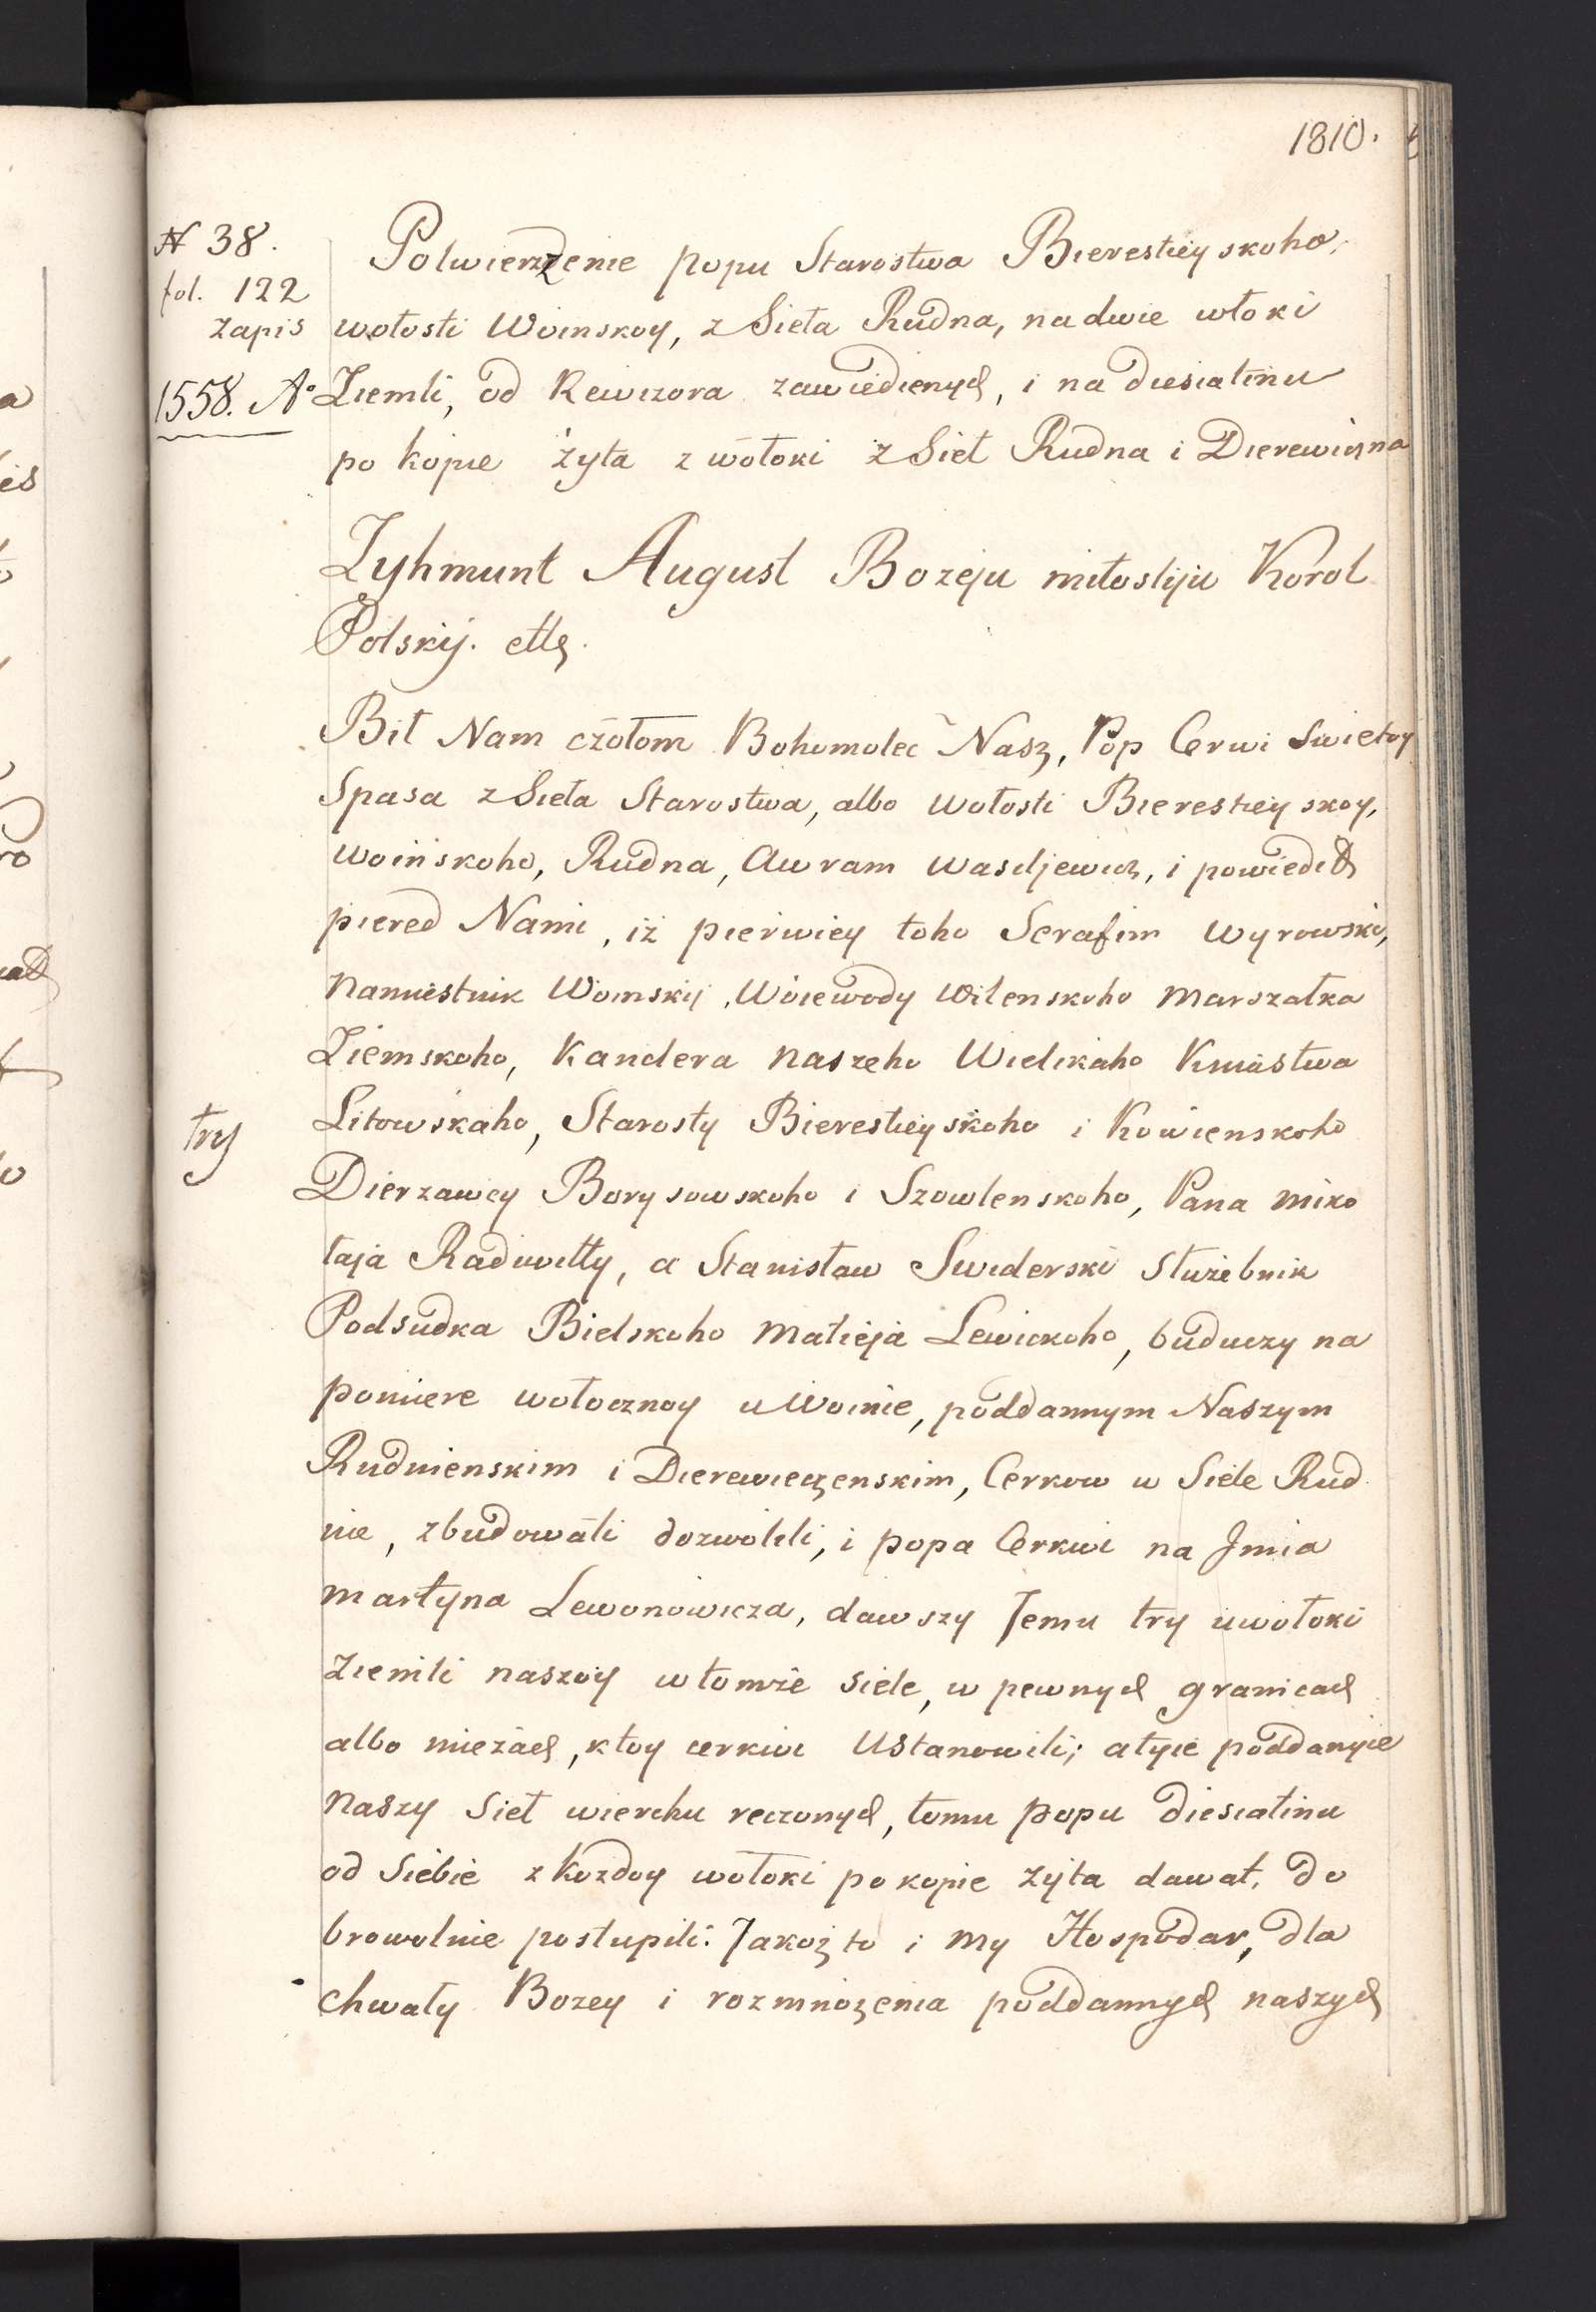 1810.
N 38.
fol. 122
Zapis
1558. Aº
Potwierżenie popu Starostwa Bierestieyskoho,
wołosti Woinskoy, z Sieła Rudna, na dwie włoki
Ziemli, od Rewizora zawiedienych, i na diesiatinu
po kopie żyta z wołoki z Sieł Rudna i Dierewiczna
Zyhmunt August Bozeju miłostiju Korol
Polskij. ettc.
Bił Nam czołom Bohomolec Nasz, Pop Cerwi Swietoy
Spasa z Sieła Starostwa, albo Wołosti Bierestieyskoy,
Woińskoho, Rudna, Awram Wasiljewicz, i powiedił
piered Nami, iż pierwiey toho Serafim Wyrowski,
Namiestnik Woinskij, Woiewody Wilenskoho Marszałka
Ziemskoho, Kanclera naszeho Wielikaho Kniastwa
Litowskaho, Starosty Bierestieyskoho i Kowienskoho
try
Dierzawcy Borysowskoho i Szowlenskoho, Pana Miko
łaja Radiwiłły, a Stanisław Swiderski Służebnik
Podsudka Bielskoho Matieja Lewickoho, buduczy na
pomiere wołocznoy u Woinie, poddannym Naszym
Rudnienskim i Dierewieczenskim, Cerkow w Siele Rud
nie, zbudowati dozwolili, i popa Cerkwi na Jmia
Martyna Lewonowicza, dawszy Jemu try uwołoki
Ziemli naszoy w tomże Siele, w pewnych granicach
albo miezach, k toy cerkwi Ustanowili; a tyie poddanyie
Naszy Sieł wierchu reczonych, tomu popu diesiatinu
od Siebie z Kozdoy wołoki po kopie żyta dawat, do
browolnie postupili. Jakoż to i my Hospodar, dla
chwały Bozey i rozmnożenia poddannych naszych